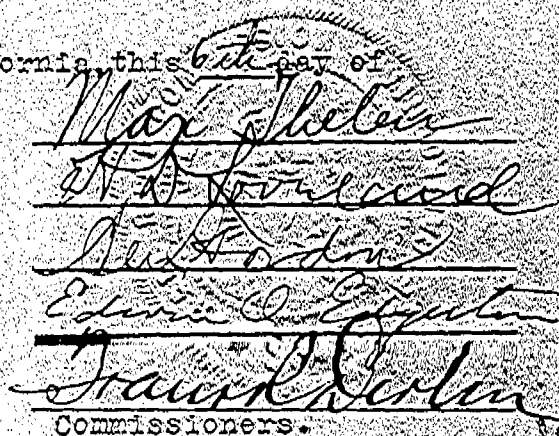 ornia, this 6th day of
Max Thelen
H. D. Loveland
Alex Gordon
Edwin O. Edgerton
Frank R. Devlin
Commissioners.